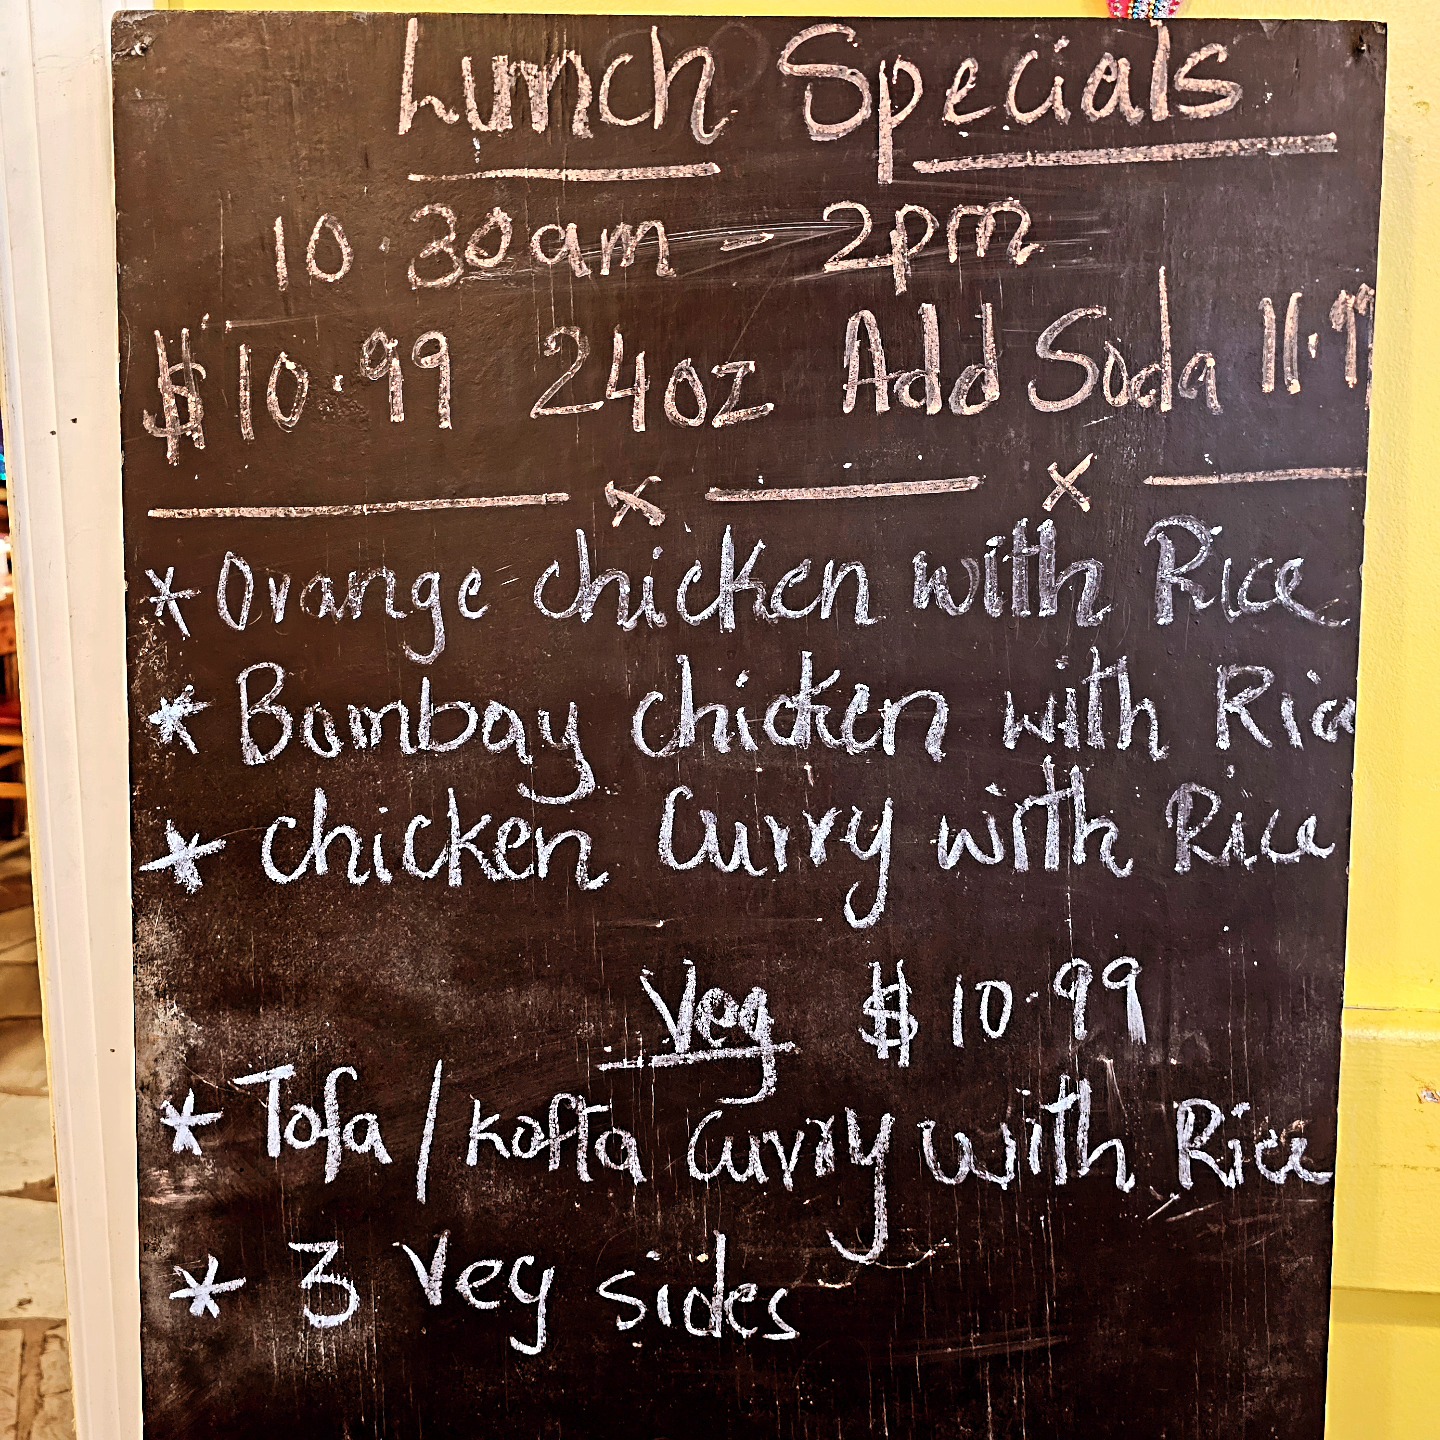 Lunch Specials
10.30am - 2pm
$10.99 24oz Add Soda 11.99
x x
* Orange chicken with Rice
* Bombay chicken with Rice
* chicken Curry with Rice
Veg $10.99
* Tofa / Kofta Curry with Rice
* 3 Veg sides